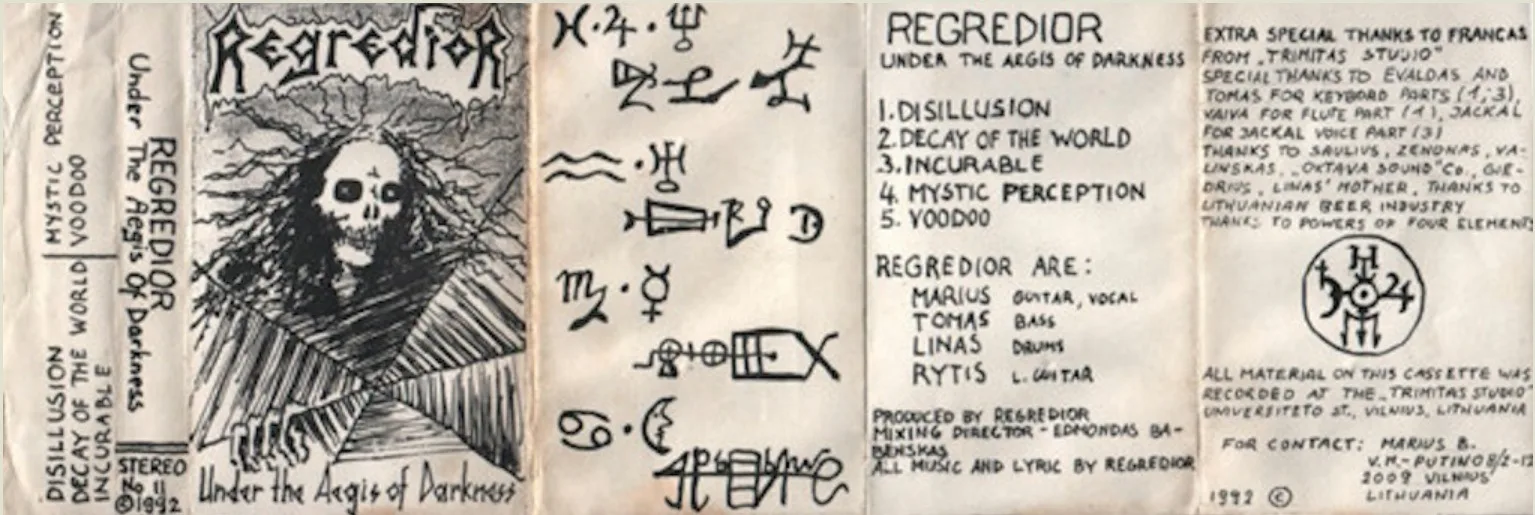 MYSTIC PERCEPTION
VOODOO
DISILLUSION
DECAY OF THE WORLD
INCURABLE
REGREDIOR
Under The Aegis Of Darkness
STEREO
No 11
©1992
Regredior
Under the Aegis of Darkness
REGREDIOR
UNDER THE AEGIS OF DARKNESS
1. DISILLUSION
2. DECAY OF THE WORLD
3. INCURABLE
4. MYSTIC PERCEPTION
5. VOODOO
REGREDIOR ARE:
MARIUS GUITAR, VOCAL
TOMAS BASS
LINAS DRUMS
RYTIS L. GUITAR
PRODUCED BY REGREDIOR
MIXING DIRECTOR - EDMONDAS BA-
BENSKAS
ALL MUSIC AND LYRIC BY REGREDIOR
EXTRA SPECIAL THANKS TO FRANCAS
FROM „TRIMITAS STUDIO"
SPECIAL THANKS TO EVALDAS AND
TOMAS FOR KEYBORD PARTS (1, 3),
VAIVA FOR FLUTE PART (1), JACKAL
FOR JACKAL VOICE PART (3)
THANKS TO SAULIUS, ZENONAS, VA-
LINSKAS, „OKTAVA SOUND" Co., GIE-
DRIUS, LINAS' MOTHER, THANKS TO
LITHUANIAN BEER INDUSTRY
THANKS TO POWERS OF FOUR ELEMENTS
ALL MATERIAL ON THIS CASSETTE WAS
RECORDED AT THE „TRIMITAS STUDIO"
UNIVERSITETO ST., VILNIUS, LITHUANIA
FOR CONTACT: MARIUS B.
V.M.-PUTINO 8/2-12
2009 VILNIUS
LITHUANIA
1992 ©